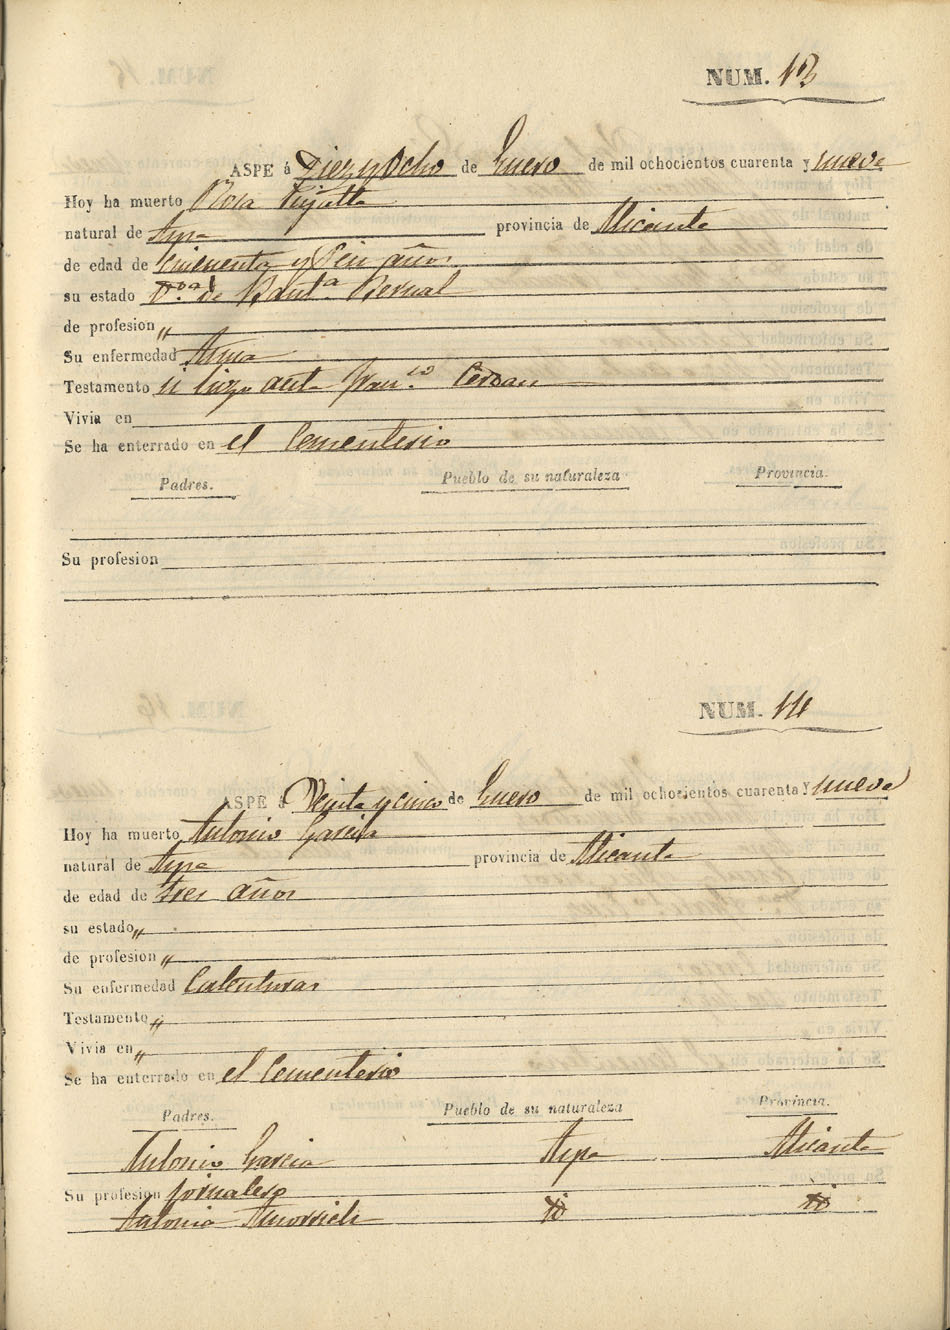 NUM. 13
ASPE á Diez y Ocho de Enero de mil ochocientos cuarenta y nueve
Hoy ha muerto Rosa
natural de Aspe provincia de Alicante
de edad de Cincuenta y Seis años
su estado V.da de Baut.a Bernal
de profesion „
Su enfermedad Asma
Testamento si hizo ante Fran.co Cerdan
Vivia en
Se ha enterrado en el Cementerio
Padres. Pueblo de su naturaleza Provincia.
Su profesion
NUM. 14
ASPE á Veinte y cinco de Enero de mil ochocientos cuarenta y nueve
Hoy ha muerto Antonio Garcia
natural de Aspe provincia de Alicante
de edad de tres años
su estado „
de profesion „
Su enfermedad Calenturas
Testamento „
Vivia en „
Se ha enterrado en el Cementerio
Padres. Pueblo de su naturaleza Provincia.
Antonio Garcia Aspe Alicante
Su profesion jornalero
Antonia